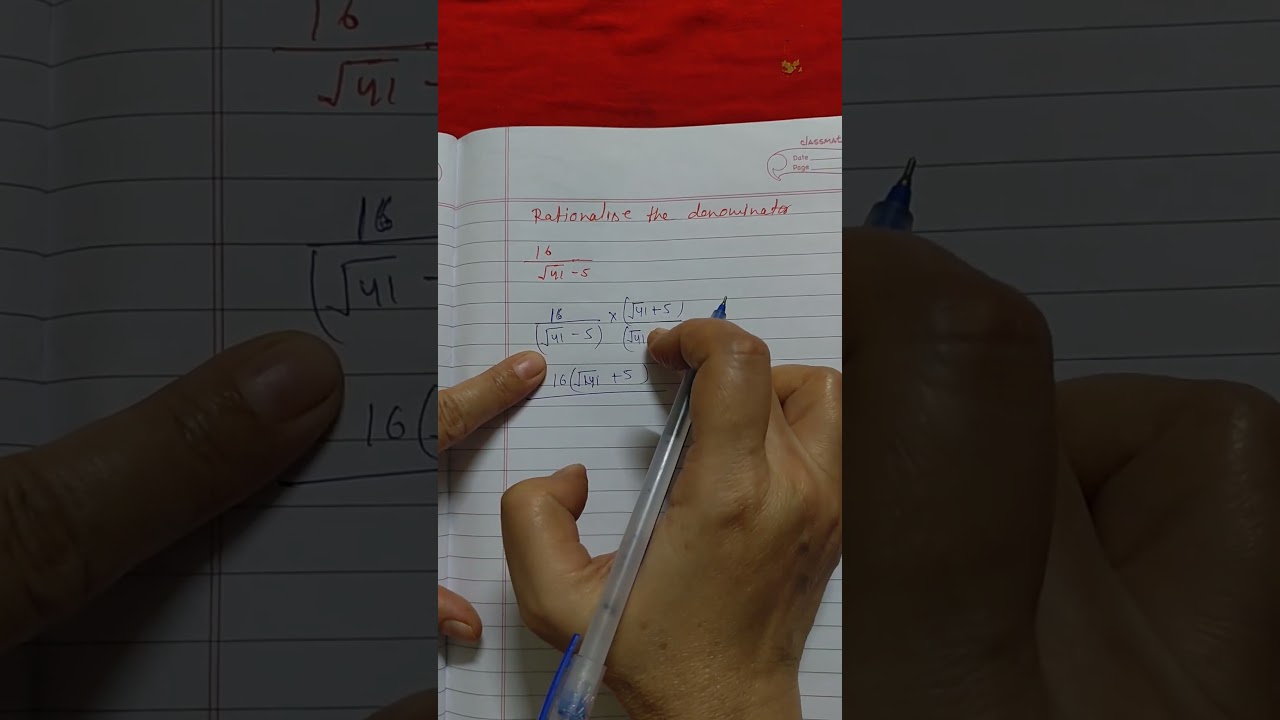 classmat
Date
Page
Rationalise the denominator
16
√41 - 5
16 × (√41 + 5)
(√41 - 5) (√41
16(√41 + 5)